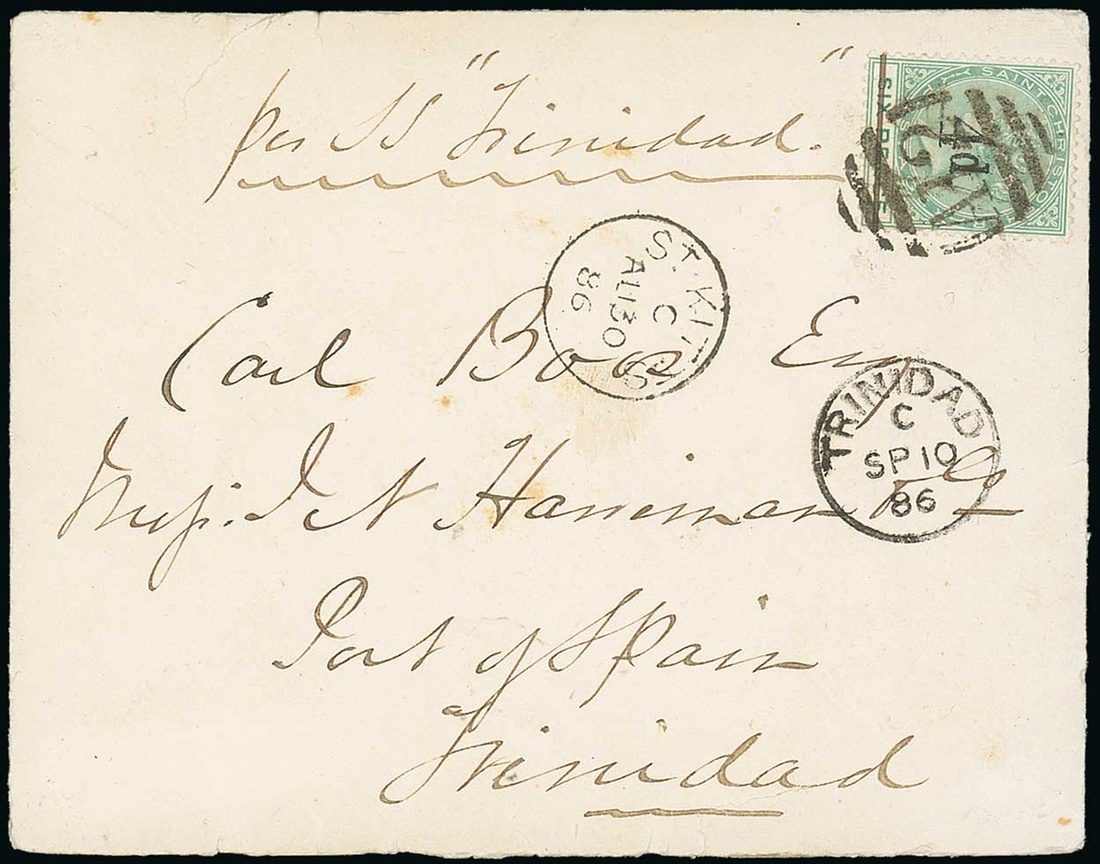 per SS "Trinidad."
SAINT CHRISTO
SIX PE E
4d
A12
ST. KITTS
C
AU 30
86
Carl Boos Esq
TRINIDAD
C
SP 10
86
Messrs. J N Harriman & Co
Port of Spain
Trinidad